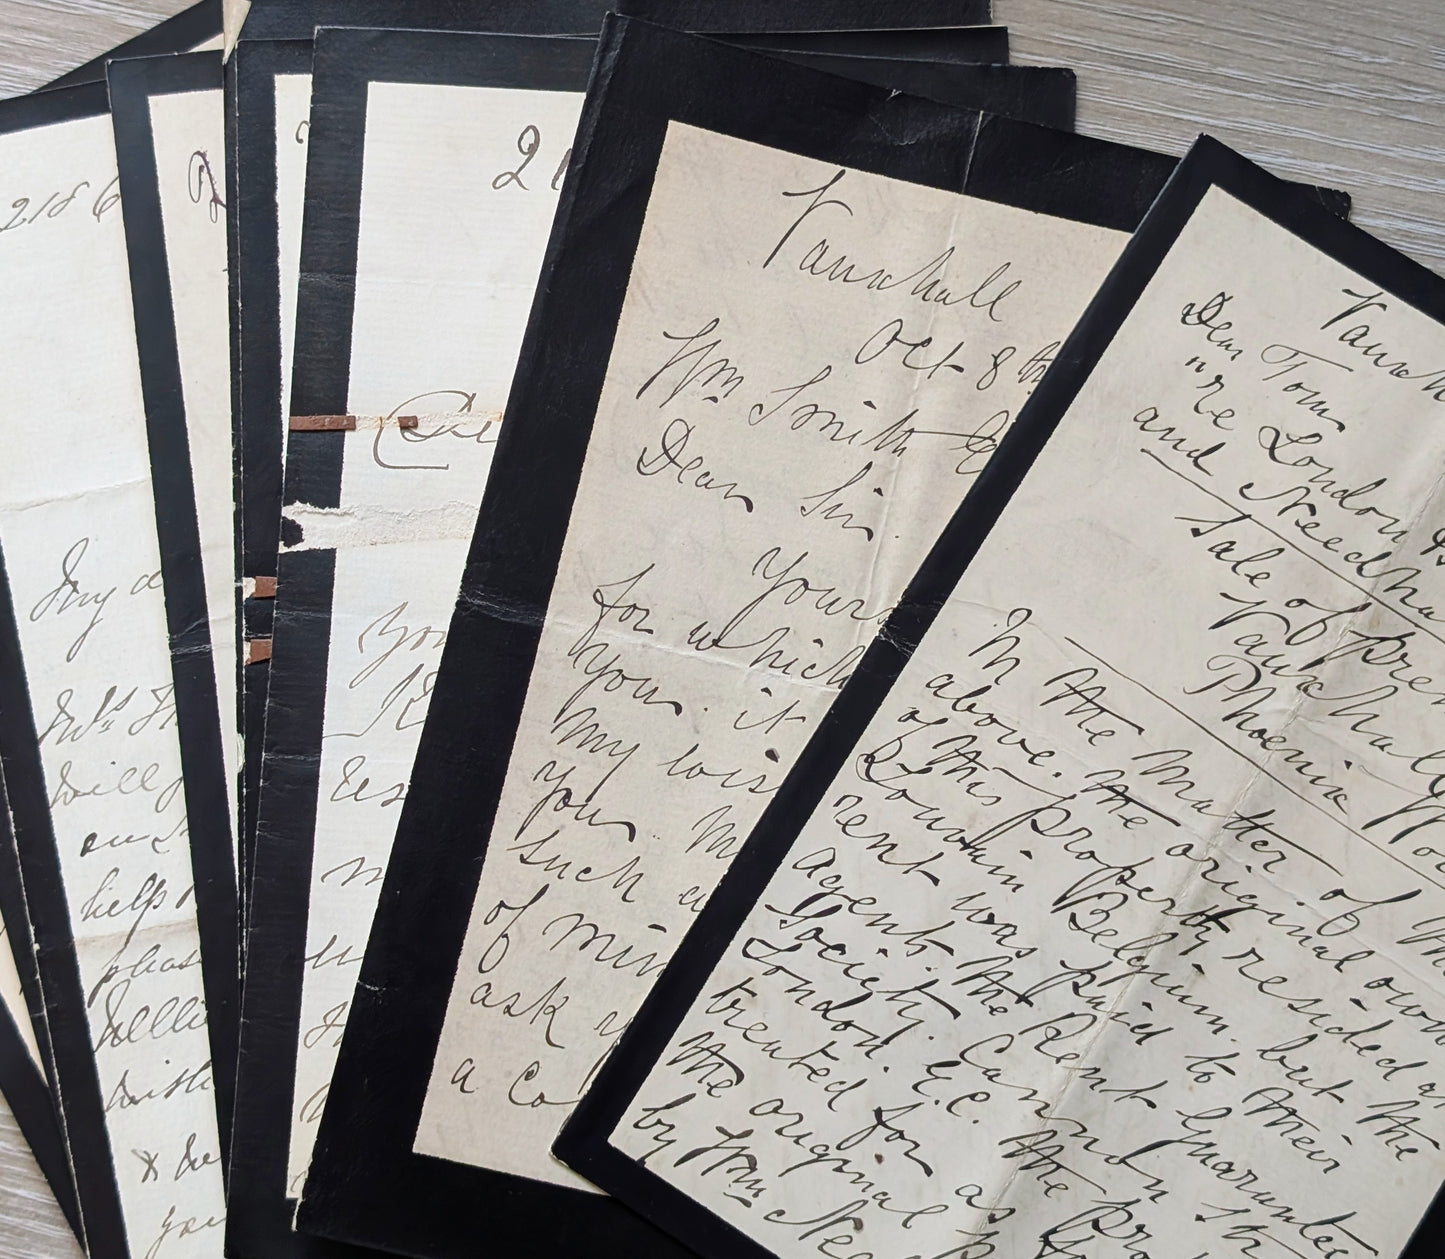 2186
My d
Mrs Th
will
help
pleas
Nellie
wish
& he
you
2
You
m
Vauxhall
Oct 8th
Wm Smith
Dear Sir
Yours
for which
you. it
my wis
you. M
such a
of min
ask y
a co
Vauxh
Dear Tom
"re London &
and Needha
Sale of prem
Vauxhall
Phoenix
In the matter of
above. the original own
of this property resided a
Louvain Belgium. but the
rent was paid to their
agent. the Rent Guarantee
Society. Cannon St
London. E.C. the pro
treated for as
the original p
by Wm Nee